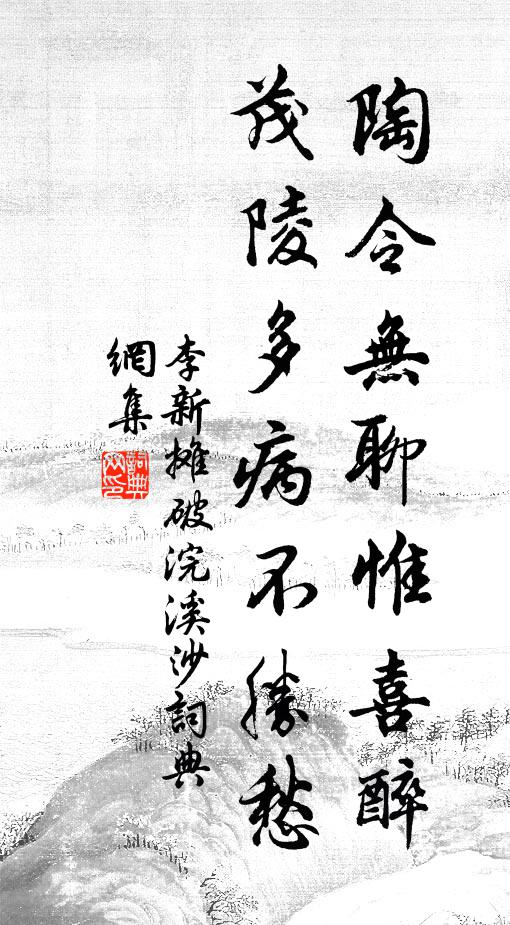 陶令無聊惟喜醉
茂陵多病不勝愁
李新攤破浣溪沙詞典
網集
詞典網印